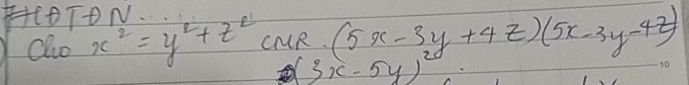 HĐTĐN...
Cho x² = y² + z² CMR. (5x - 3y + 4z)(5x - 3y - 4z)
= (3x - 5y)².
10